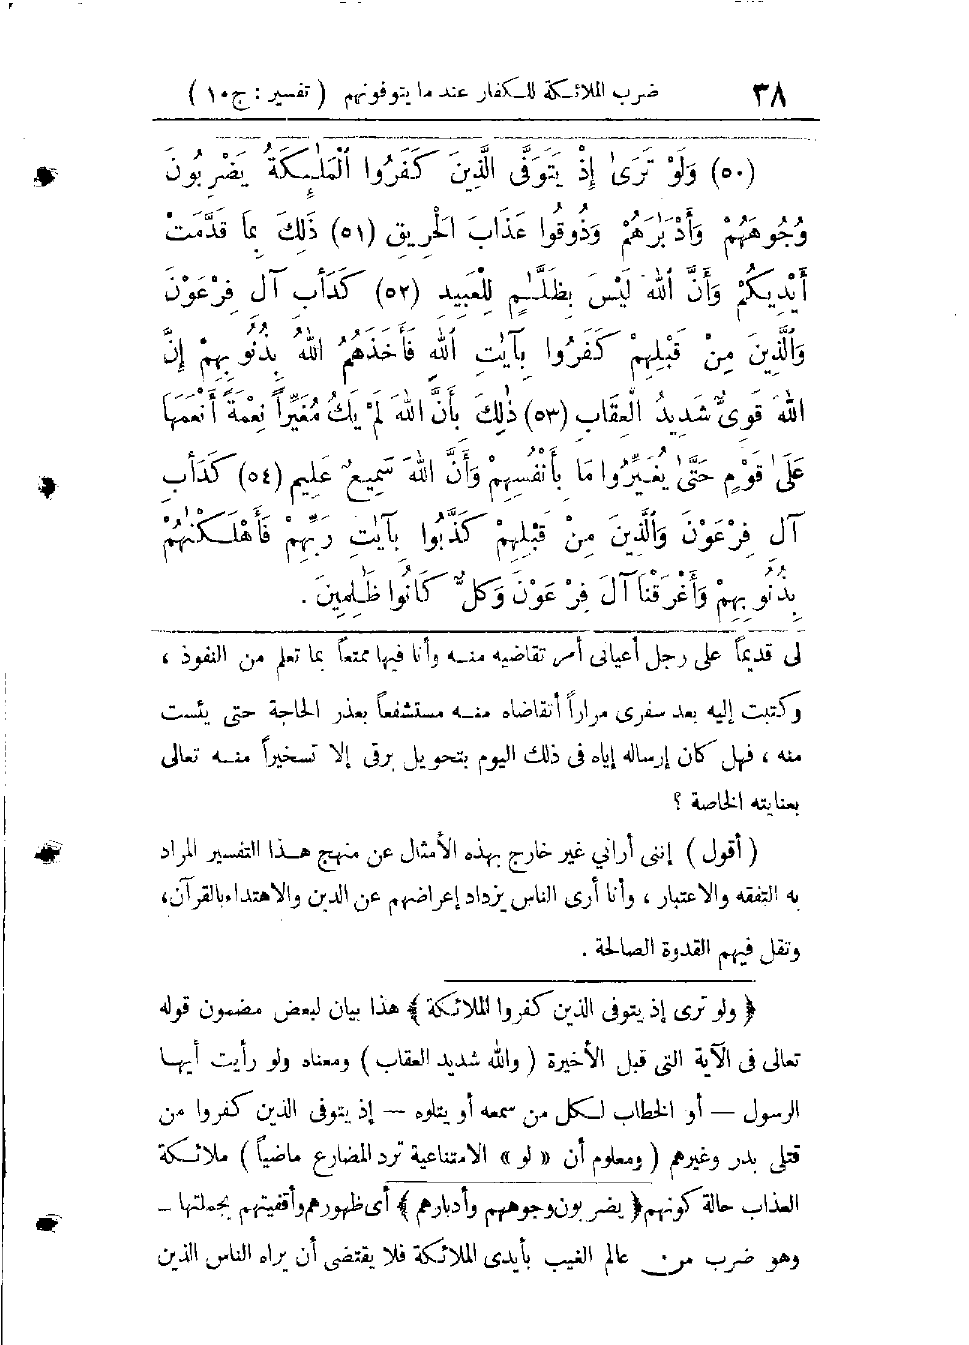 ٣٨ ضرب الملائكة للكفار عند ما يتوفونهم ( تفسير : ج ١٠ )
(٥٠) وَلَوْ تَرَىٰ إِذْ يَتَوَفَّى الَّذِينَ كَفَرُوا ٱلْمَلَٰئِكَةُ يَضْرِبُونَ
وُجُوهَهُمْ وَأَدْبَٰرَهُمْ وَذُوقُوا عَذَابَ الْحَرِيقِ (٥١) ذَلِكَ بِمَا قَدَّمَتْ
أَيْدِيكُمْ وَأَنَّ ٱللهَ لَيْسَ بِظَلَّٰمٍ لِلْعَبِيدِ (٥٢) كَدَأْبِ آلِ فِرْعَوْنَ
وَالَّذِينَ مِنْ قَبْلِهِمْ كَفَرُوا بِآيَٰتِ ٱللهِ فَأَخَذَهُمُ اللهُ بِذُنُوبِهِمْ إِنَّ
اللهَ قَوِىٌّ شَدِيدُ الْعِقَابِ (٥٣) ذَٰلِكَ بِأَنَّ اللهَ لَمْ يَكُ مُغَيِّراً نِعْمَةً أَنْعَمَهَا
عَلَىٰ قَوْمٍ حَتَّىٰ يُغَيِّرُوا مَا بِأَنْفُسِهِمْ وَأَنَّ اللهَ سَمِيعٌ عَلِيم (٥٤) كَدَأْبِ
آلِ فِرْعَوْنَ وَٱلَّذِينَ مِنْ قَبْلِهِمْ كَذَّبُوا بِآيَٰتِ رَبِّهِمْ فَأَهْلَكْنَٰهُمْ
بِذُنُوبِهِمْ وَأَغْرَقْنَا آلَ فِرْعَوْنَ وَكُلٌّ كَانُوا ظَٰلِمِينَ .
لى قديماً على رجل أعيانى أمر تقاضيه منه وأنا فيها ممتعاً بما تعلم من النفوذ ،
وكتبت إليه بعد سفرى مراراً أتقاضاه منه مستشفعاً بعذر الحاجة حتى يئست
منه ، فهل كان إرساله إياه فى ذلك اليوم بتحويل برقى إلا تسخيراً منه تعالى
بعنايته الخاصة ؟
( أقول ) إننى أرانى غير خارج بهذه الأمثال عن منهج هذا التفسير المراد
به التفقه والاعتبار ، وأنا أرى الناس يزداد إعراضهم عن الدين والاهتداء بالقرآن،
وتقل فيهم القدوة الصالحة .
﴿ ولو ترى إذ يتوفى الذين كفروا الملائكة ﴾ هذا بيان لبعض مضمون قوله
تعالى فى الآية التى قبل الأخيرة ( والله شديد العقاب ) ومعناه ولو رأيت أيها
الرسول — أو الخطاب لكل من سمعه أو يتلوه — إذ يتوفى الذين كفروا من
قتلى بدر وغيرهم ( ومعلوم أن « لو » الامتناعية ترد المضارع ماضياً ) ملائكة
العذاب حالة كونهم ﴿ يضربون وجوههم وأدبارهم ﴾ أى ظهورهم وأقفيتهم بجملتها –
وهو ضرب من عالم الغيب بأيدى الملائكة فلا يقتضى أن يراه الناس الذين